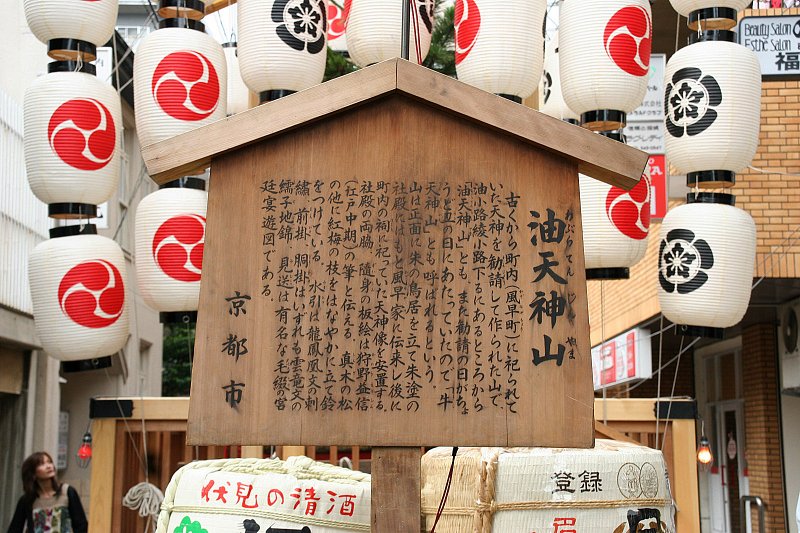 油天神山
あぶらてんじんやま
古くから町内(風早町)に祀られて
いた天神を勧請して作られた山で、
油小路綾小路下るにあるところから
「油天神山」とも、また勧請の日がちょ
うど丑の日にあたっていたので「牛
天神山」とも呼ばれるという。
山は正面に朱の鳥居を立て朱塗の
社殿にはもと風早家に伝来し後に
町内の祠に祀っていた天神像を安置する。
社殿の両脇、随身の板絵は狩野益信
(江戸中期)の筆と伝える。真木の松
の他に紅梅の枝をはなやかに立て鈴
をつけている。水引は龍鳳凰文の刺
繍、前掛、胴掛はいずれも雲竜文の
繻子地錦、見送は有名な毛綴の宮
廷宴遊図である。
京都市
Beauty Salon
Esthe Salon
福
伏見の清酒
登録